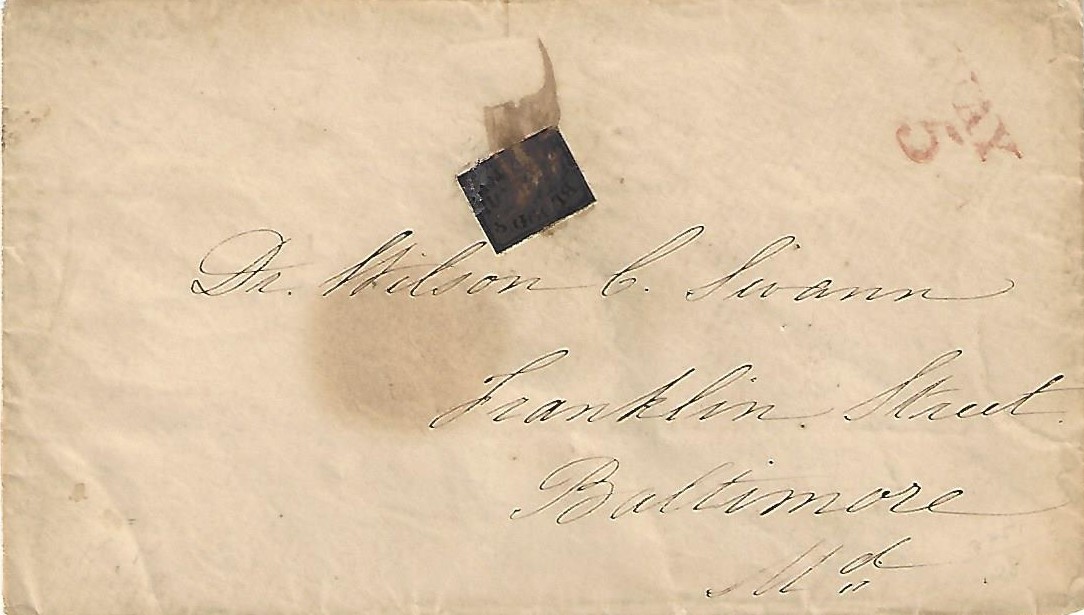 PAID
5
Dr. Wilson C. Swann
Franklin Street
Baltimore
Md